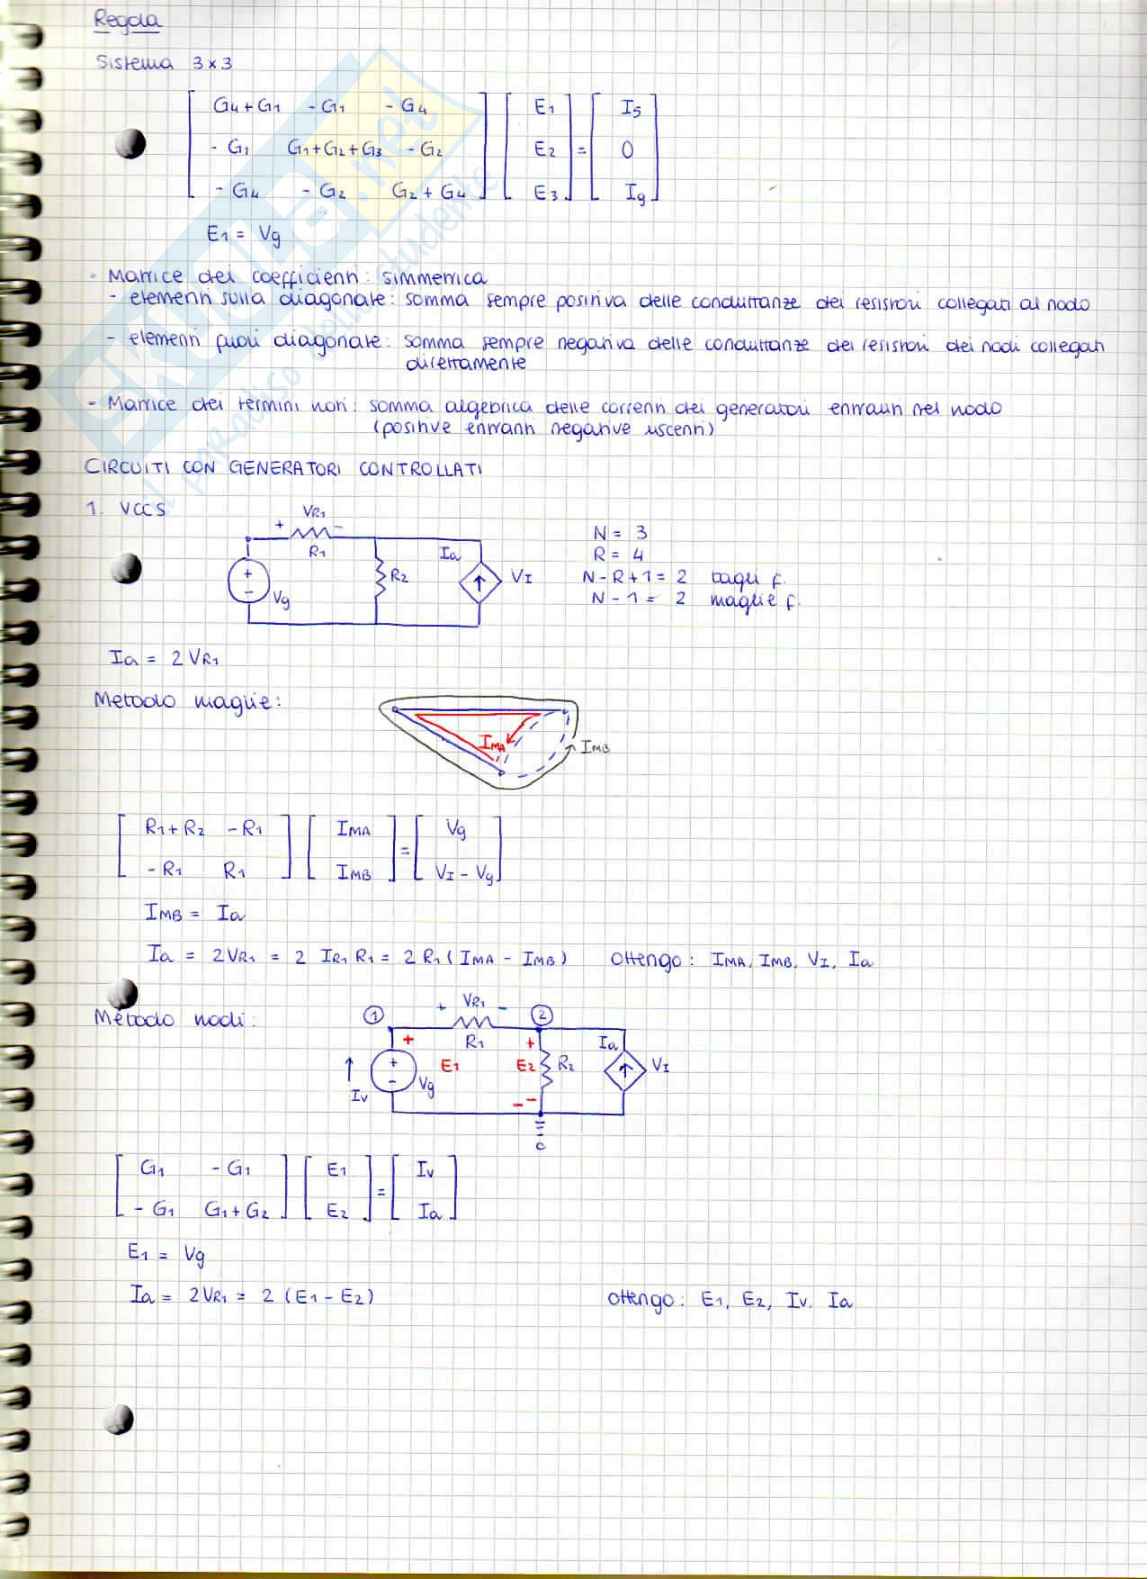 Regola
Sistema 3x3
G4+G1 -G1 -G4 E1 I5
-G1 G1+G2+G3 -G2 E2 = 0
-G4 -G2 G2+G4 E3 Ig
E1 = Vg
- Matrice dei coefficienti: simmetrica
- elementi sulla diagonale: somma sempre positiva delle conduttanze dei resistori collegati al nodo
- elementi fuori diagonale: somma sempre negativa delle conduttanze dei resistori dei nodi collegati
direttamente
- Matrice dei termini noti: somma algebrica delle correnti dei generatori entranti nel nodo
(positive entranti negative uscenti)
CIRCUITI CON GENERATORI CONTROLLATI
1. VCCS
VR1
+ -
R1
Ia
R2
VI
+
-
Vg
N = 3
R = 4
N-R+1 = 2 tagli f.
N-1 = 2 maglie f.
Ia = 2VR1
Metodo maglie:
IMA
IMB
R1+R2 -R1 IMA = Vg
-R1 R1 IMB VI - Vg
IMB = Ia
Ia = 2VR1 = 2 IR1 R1 = 2 R1 (IMA - IMB) Ottengo: IMA, IMB, VI, Ia
Metodo nodi:
1
+ VR1 -
2
R1
+
+
Ia
E1
E2
R2
VI
+
-
Vg
Iv
- -
G1 -G1 E1 = Iv
-G1 G1+G2 E2 Ia
E1 = Vg
Ia = 2VR1 = 2 (E1 - E2) Ottengo: E1, E2, Iv, Ia